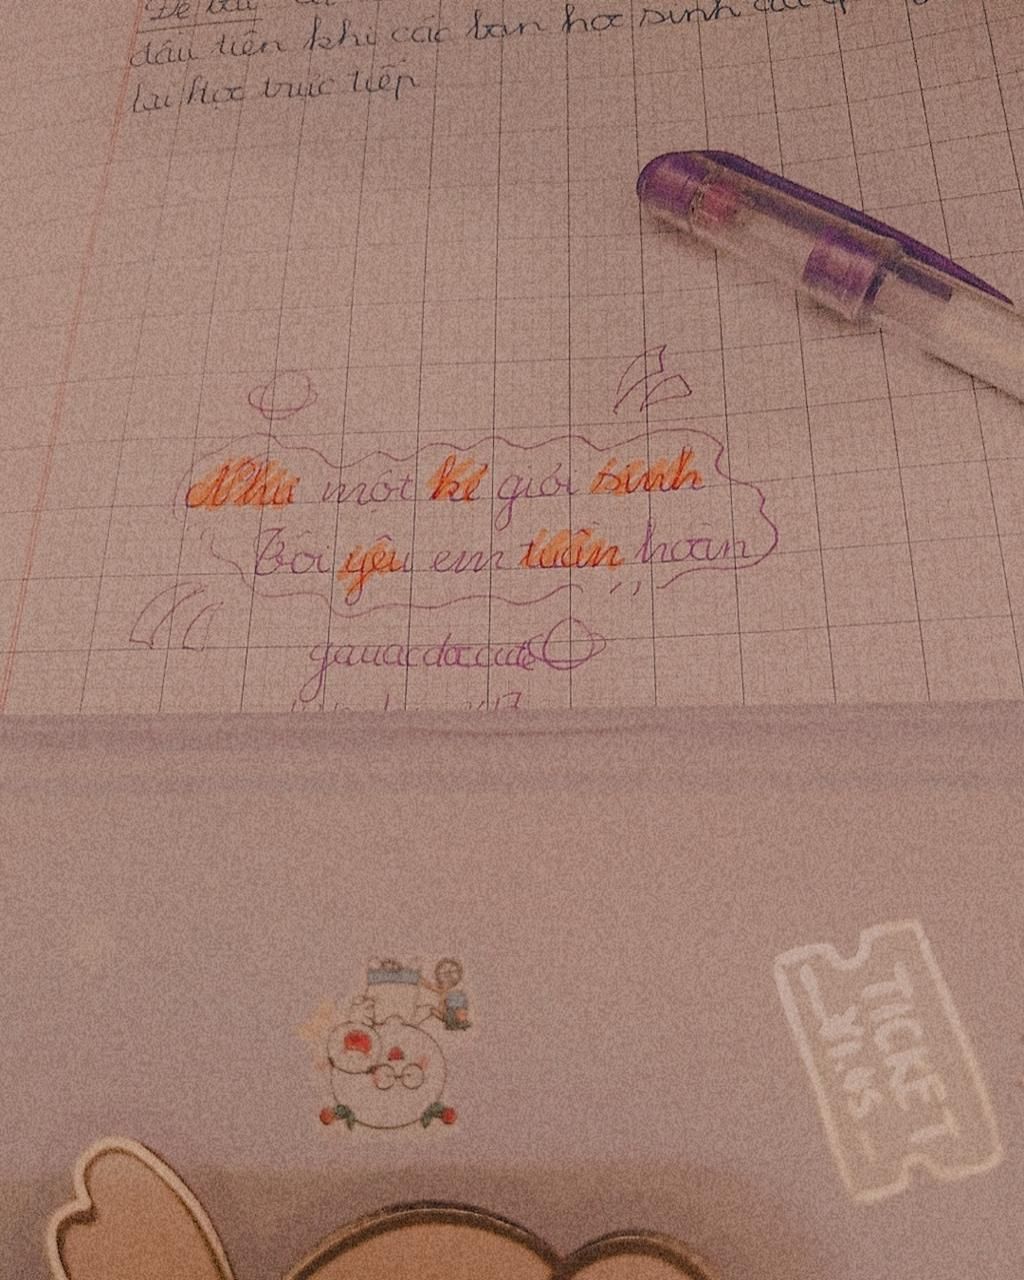 Đề bài
đầu tiên khi các bạn học sinh
lại học trực tiếp
Như một kẻ giỏi sinh
Tôi yêu em tuần hoàn
TICKET